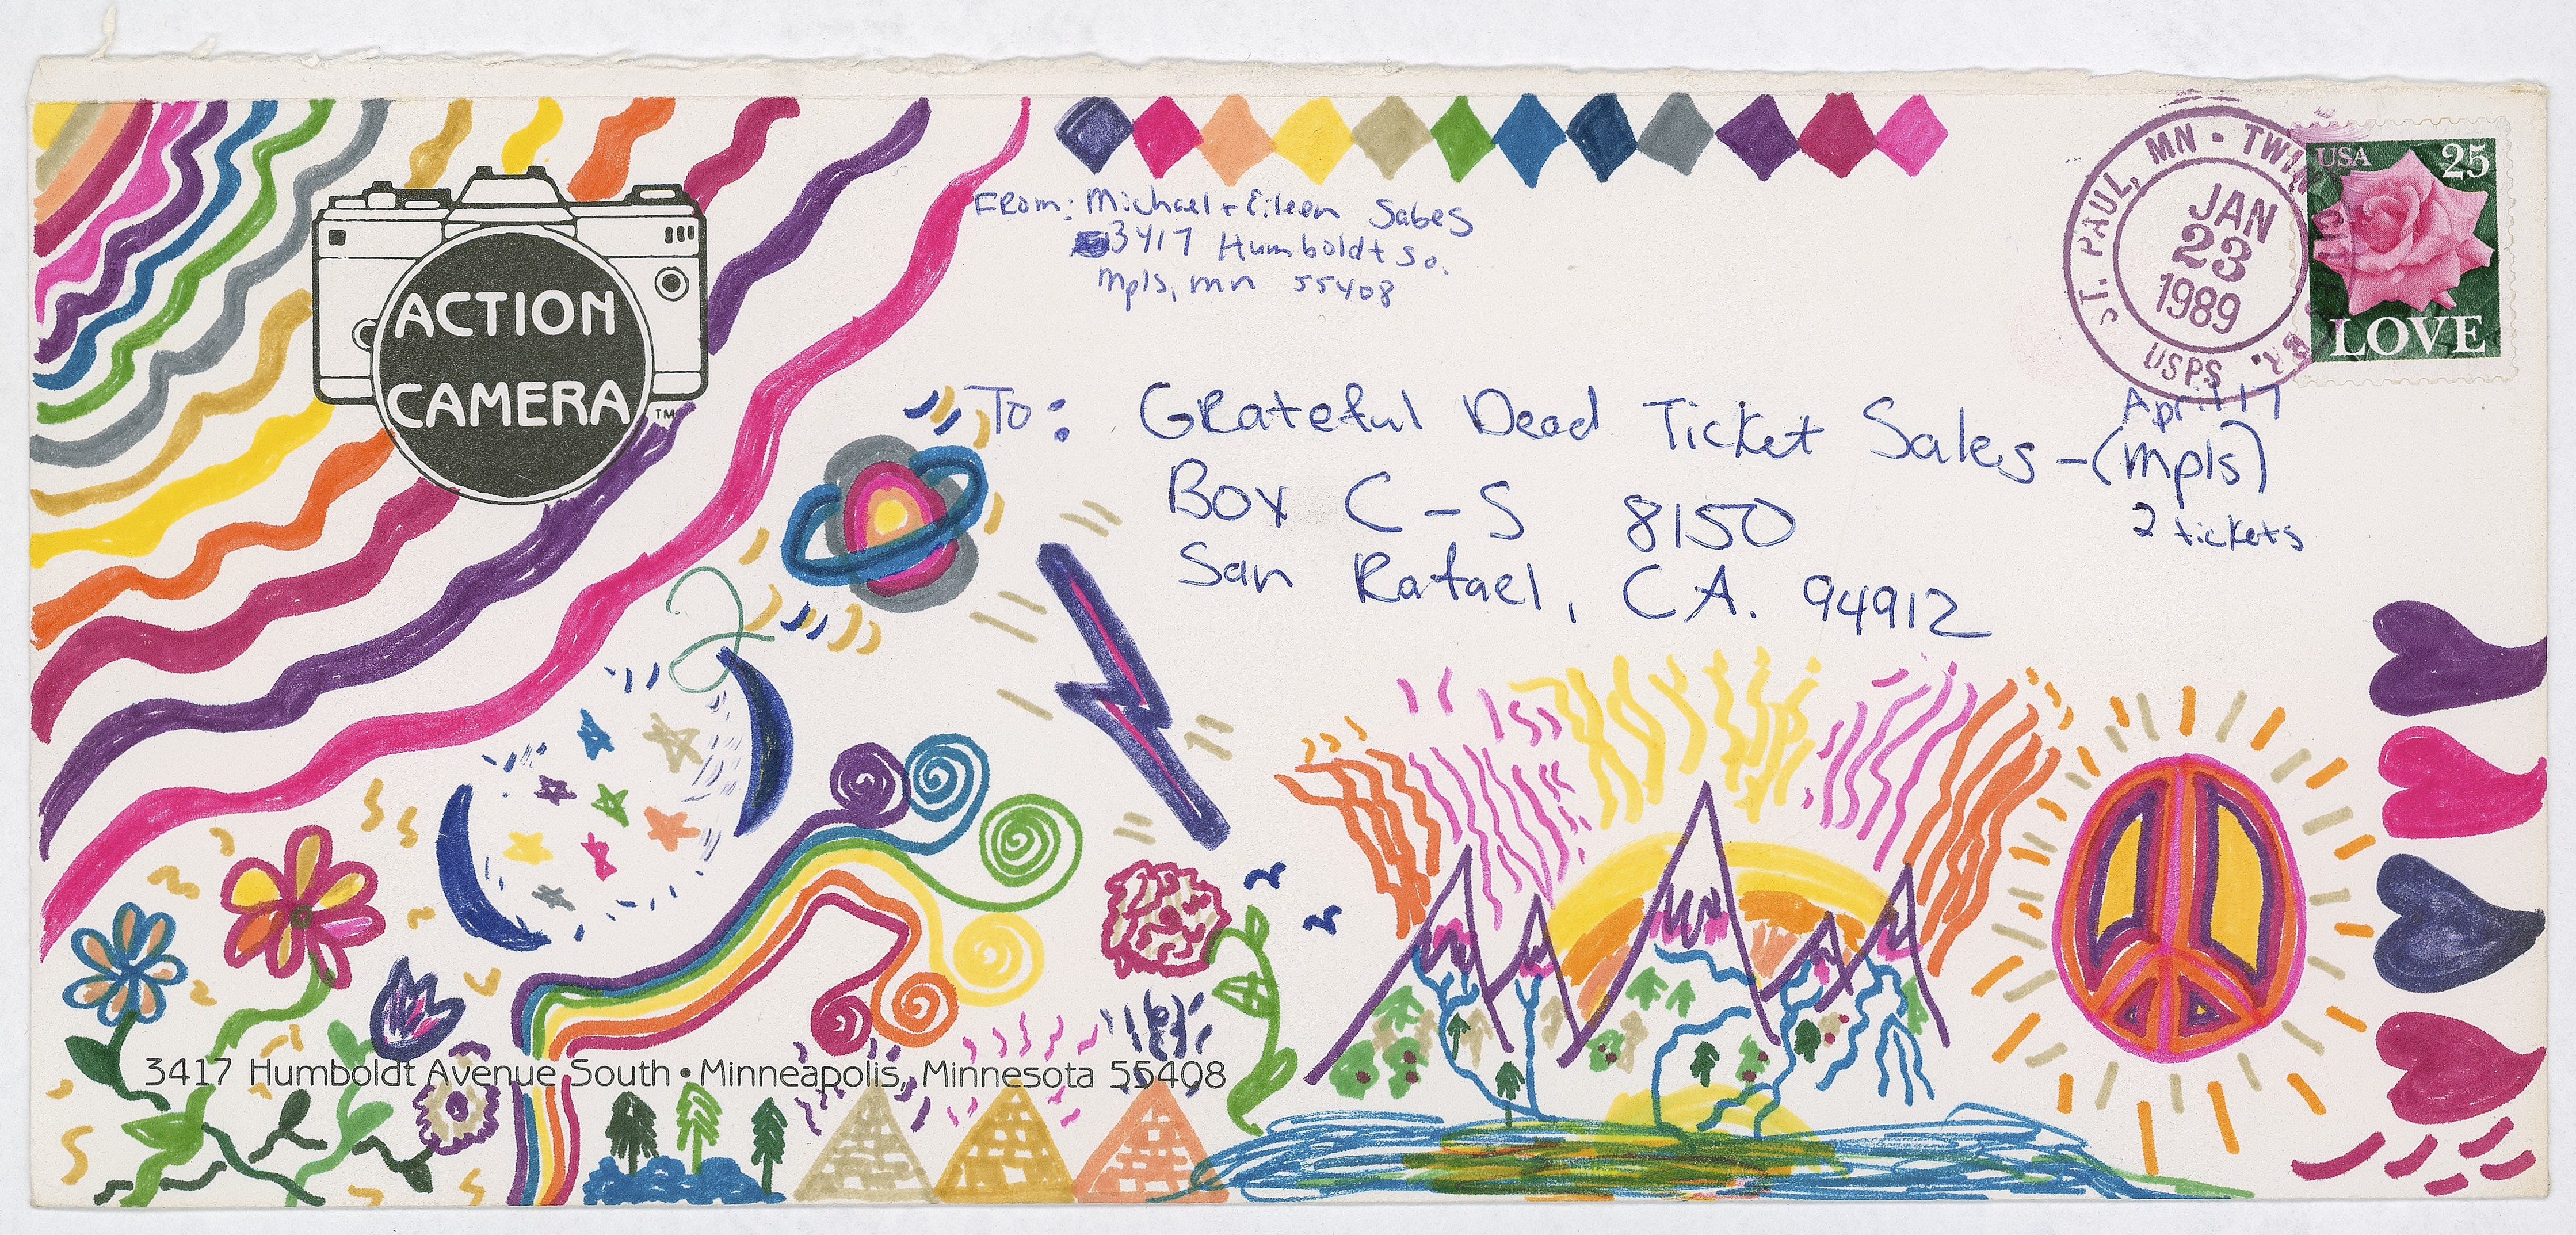 ACTION
CAMERA
TM
FROM: Michael + Eileen Sabes
3417 Humboldt So.
Mpls, mn 55408
ST. PAUL, MN • TWIN
JAN
23
1989
USPS
USA 25
LOVE
To: Grateful Dead Ticket Sales - (Mpls)
April 17
Box C-S 8150
2 tickets
San Rafael, CA. 94912
2
3417 Humboldt Avenue South • Minneapolis, Minnesota 55408